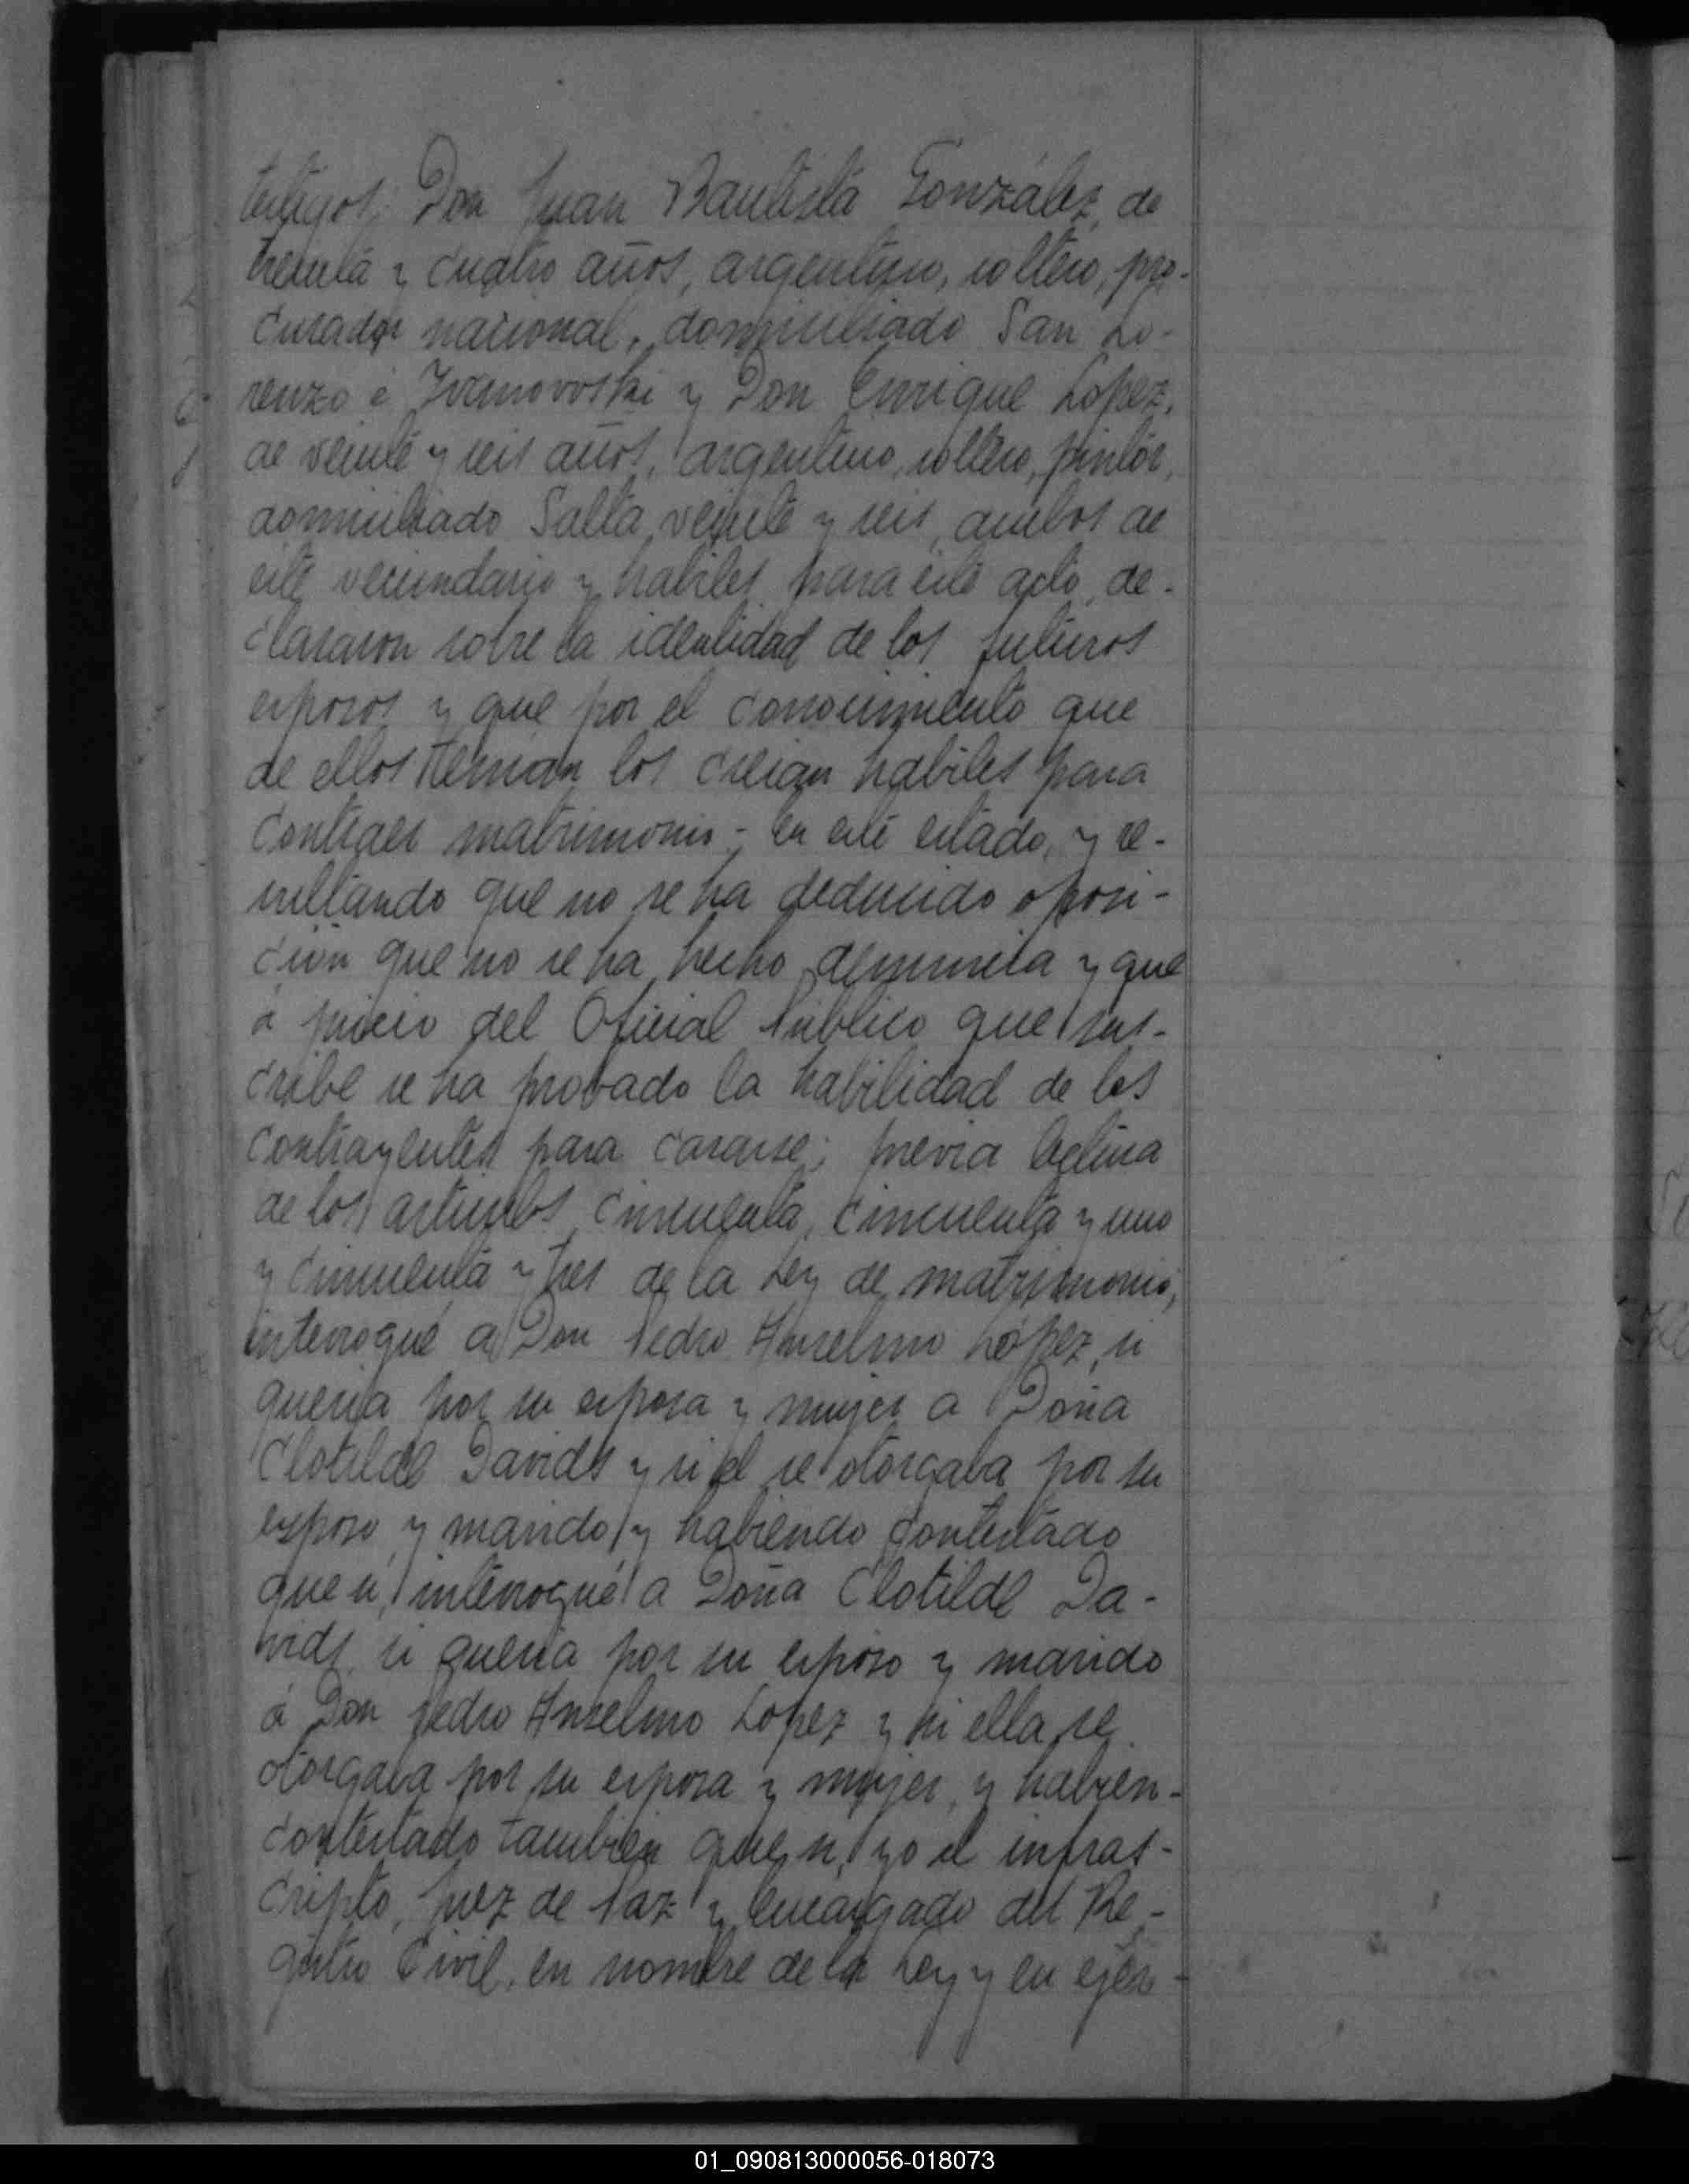 testigos; Don Juan Bautista González, de
treinta y cuatro años, argentino, soltero, pro-
curador nacional, domiciliado San Lo-
renzo é Ivanovoski y Don Enrique Lopez,
de veinte y seis años, argentino, soltero, pintor,
domiciliado Salta veinte y seis, ambos de
este vecindario y habiles para este acto, de-
clararon sobre la identidad de los futuros
esposos y que por el conocimiento que
de ellos tenian los creian habiles para
contraer matrimonio - En este estado, y re-
sultando que no se ha deducido oposi-
cion que no se ha hecho denuncia y que
a juicio del Oficial Público que sus-
cribe se ha probado la habilidad de los
contrayentes para casarse; previa lectura
de los articulos cincuenta, cincuenta y uno
y cincuenta y tres de la Ley de matrimonio,
interrogué a Don Pedro Anselmo López, si
queria por su esposa y mujer a Doña
Clotilde Davids y si el se otorgaba por su
esposo y marido y habiendo contestado
que si, interrogué a Doña Clotilde Da-
vids si queria por su esposo y marido
á Don Pedro Anselmo Lopez y si ella se
otorgaba por su esposa y mujer, y habien-
contestado tambien que si, yo el infras-
cripto, Juez de Paz y Encargado del Re-
gistro Civil, en nombre de la Ley y en ejer-
01_090813000056-018073